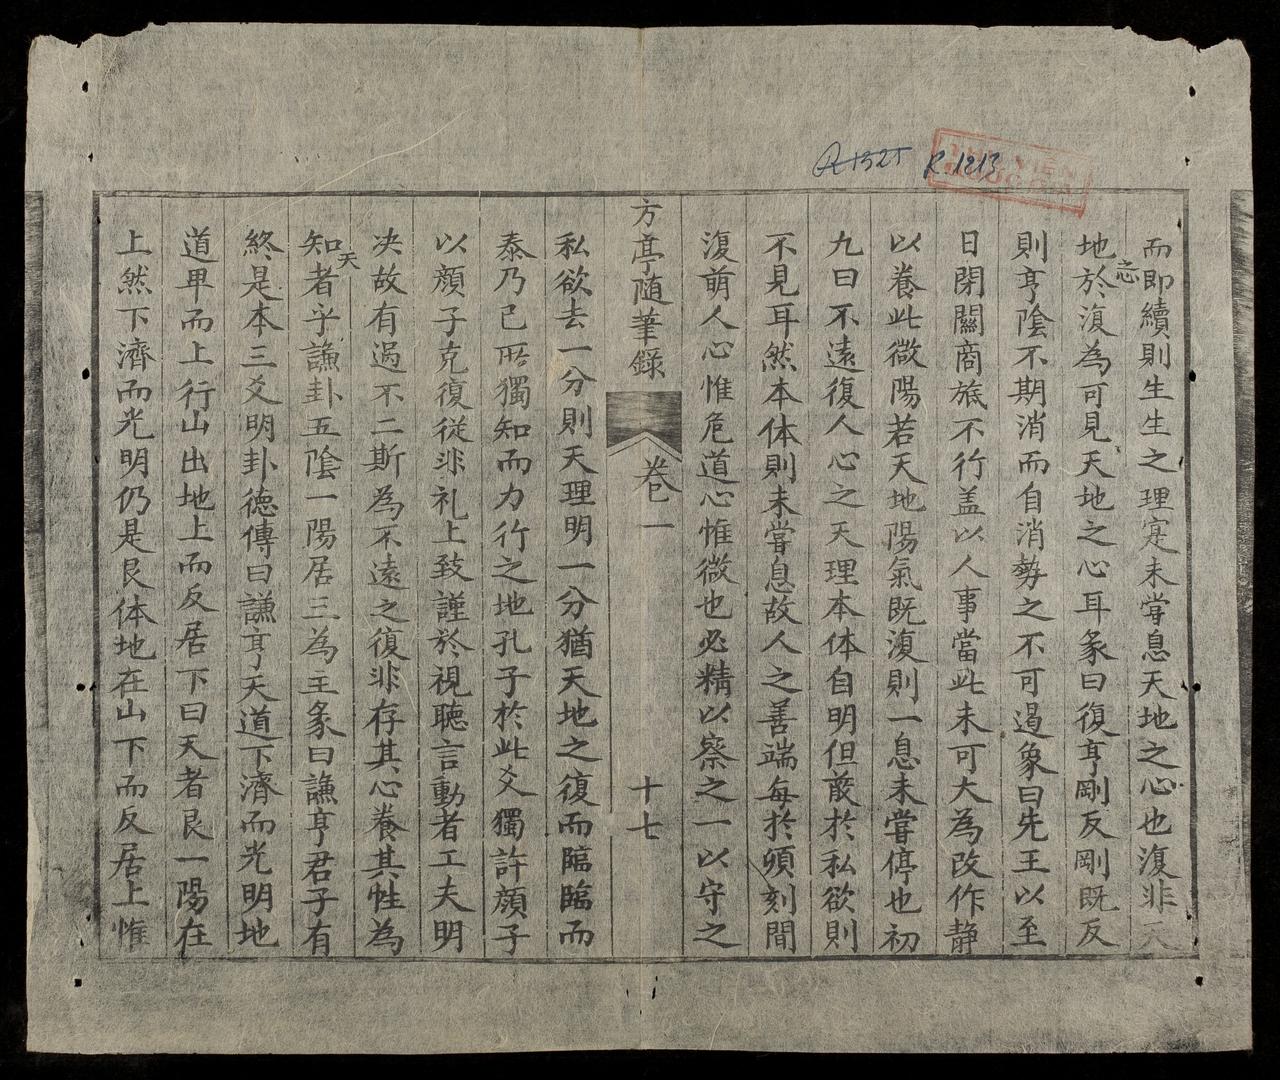 R 1525 R.1213
而即續則生生之理寔未嘗息天地之心也復非天
地之心於復為可見天地之心耳彖曰復亨剛反剛既反
則亨陰不期消而自消勢之不可遏象曰先王以至
日閉關商旅不行盖以人事當此未可大為改作静
以養此微陽若天地陽氣既復則一息未嘗停也初
九曰不遠復人心之天理本体自明但蔽於私欲則
不見耳然本体則未嘗息故人之善端每於頃刻間
復萌人心惟危道心惟微也必精以察之一以守之
方亭随筆錄
卷一
十七
私欲去一分則天理明一分猶天地之復而臨臨而
泰乃己所獨知而力行之地孔子於此爻獨許顔子
以顔子克復從非礼上致謹於視聽言動者工夫明
决故有過不二斯為不遠之復非存其心養其性為
知天者乎謙卦五陰一陽居三為主彖曰謙亨君子有
終是本三爻明卦德傳曰謙亨天道下濟而光明地
道卑而上行山出地上而反居下曰天者艮一陽在
上然下濟而光明仍是艮体地在山下而反居上惟